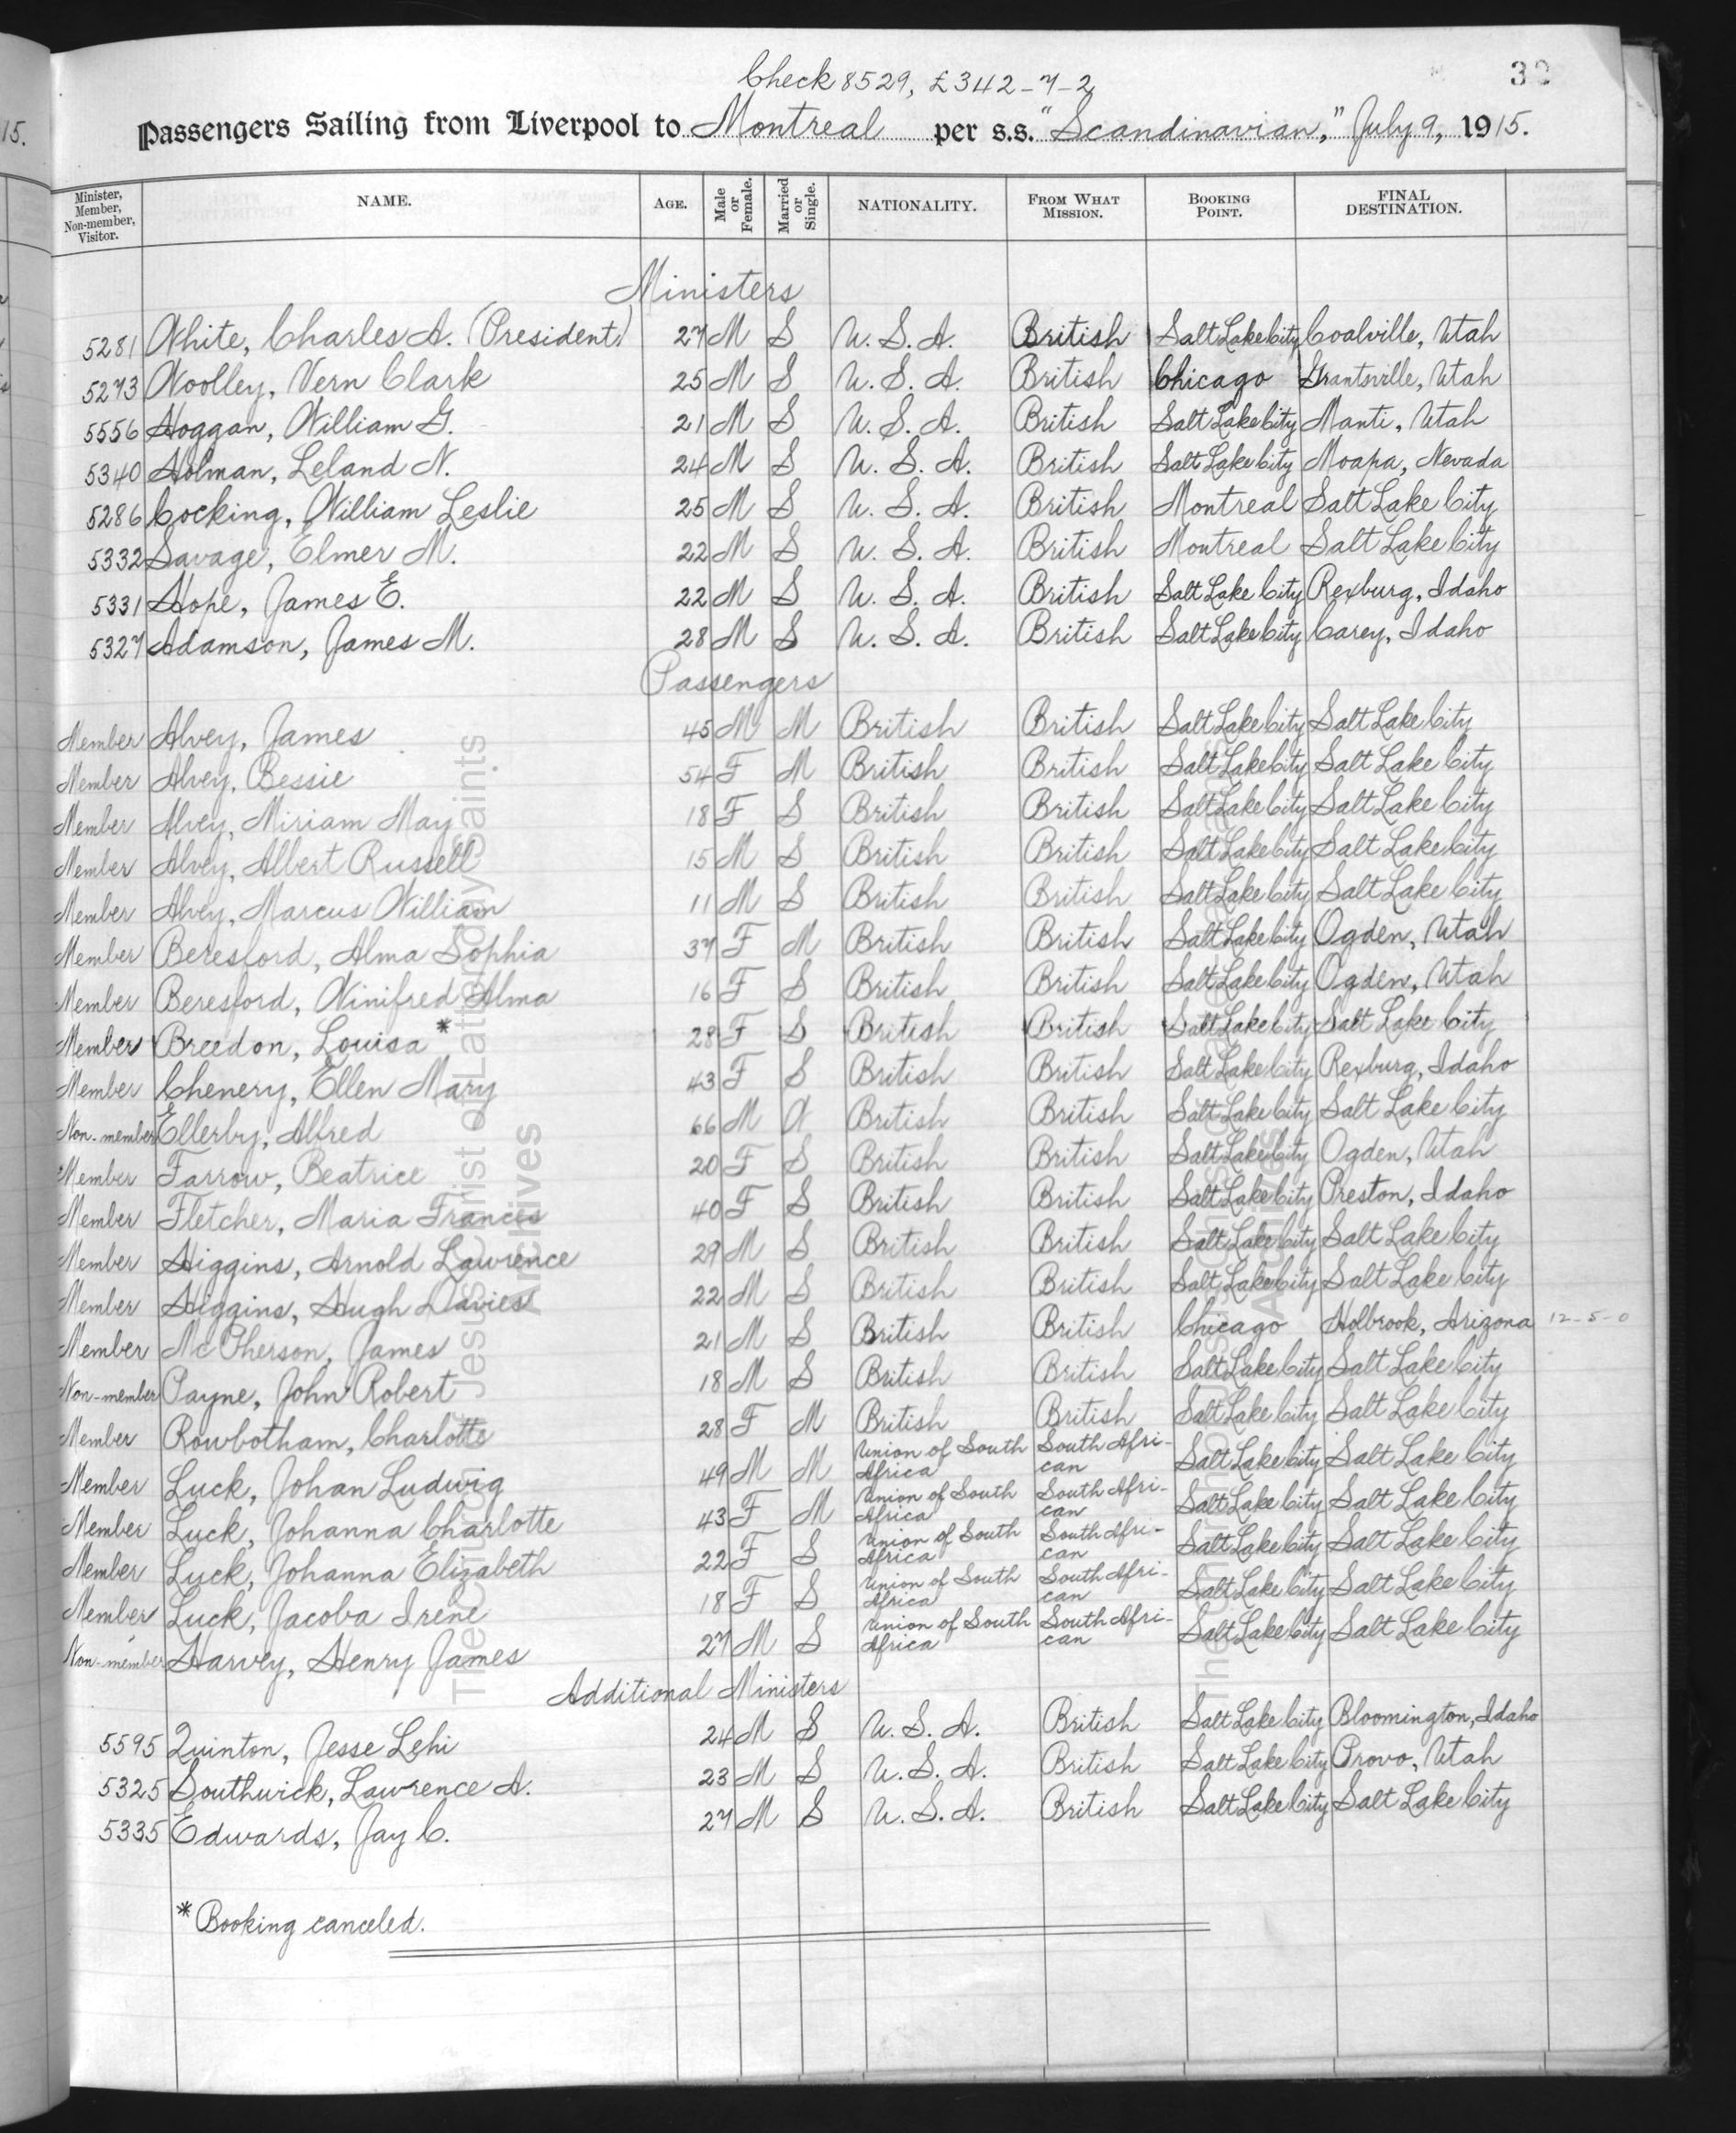 Check 8529, £342-7-2
Passengers Sailing from Liverpool to Montreal per s.s. "Scandinavian," July 9, 1915.
Minister, Member, Non-member, Visitor. NAME. AGE. Male or Female. Married or Single. NATIONALITY. FROM WHAT MISSION. BOOKING POINT. FINAL DESTINATION.
Ministers
5281 White, Charles A. (President) 27 M S U. S. A. British Salt Lake City Coalville, Utah
5273 Woolley, Vern Clark 25 M S U. S. A. British Chicago Grantsville, Utah
5556 Hoggan, William G. 21 M S U. S. A. British Salt Lake City Manti, Utah
5340 Holman, Leland N. 24 M S U. S. A. British Salt Lake City Moapa, Nevada
5286 Cocking, William Leslie 25 M S U. S. A. British Montreal Salt Lake City
5332 Savage, Elmer M. 22 M S U. S. A. British Montreal Salt Lake City
5331 Hope, James E. 22 M S U. S. A. British Salt Lake City Rexburg, Idaho
5327 Adamson, James M. 28 M S U. S. A. British Salt Lake City Carey, Idaho
Passengers
Member Alvey, James 45 M M British British Salt Lake City Salt Lake City
Member Alvey, Bessie 54 F M British British Salt Lake City Salt Lake City
Member Alvey, Miriam May 18 F S British British Salt Lake City Salt Lake City
Member Alvey, Albert Russell 15 M S British British Salt Lake City Salt Lake City
Member Alvey, Marcus William 11 M S British British Salt Lake City Salt Lake City
Member Beresford, Alma Sophia 37 F M British British Salt Lake City Ogden, Utah
Member Beresford, Winifred Alma 16 F S British British Salt Lake City Ogden, Utah
Member Breedon, Louisa * 28 F S British British Salt Lake City Salt Lake City
Member Chenery, Ellen Mary 43 F S British British Salt Lake City Rexburg, Idaho
Non-member Ellerby, Alfred 66 M W British British Salt Lake City Salt Lake City
Member Farrow, Beatrice 20 F S British British Salt Lake City Ogden, Utah
Member Fletcher, Maria Frances 40 F S British British Salt Lake City Preston, Idaho
Member Higgins, Arnold Lawrence 29 M S British British Salt Lake City Salt Lake City
Member Higgins, Hugh Davies 22 M S British British Salt Lake City Salt Lake City
Member McPherson, James 21 M S British British Chicago Holbrook, Arizona 12-5-0
Non-member Payne, John Robert 18 M S British British Salt Lake City Salt Lake City
Member Rowbotham, Charlotte 28 F M British British Salt Lake City Salt Lake City
Member Luck, Johan Ludwig 49 M M Union of South Africa South African Salt Lake City Salt Lake City
Member Luck, Johanna Charlotte 43 F M Union of South Africa South African Salt Lake City Salt Lake City
Member Luck, Johanna Elizabeth 22 F S Union of South Africa South African Salt Lake City Salt Lake City
Member Luck, Jacoba Irene 18 F S Union of South Africa South African Salt Lake City Salt Lake City
Non-member Harvey, Henry James 27 M S Union of South Africa South African Salt Lake City Salt Lake City
Additional Ministers
5595 Quinton, Jesse Lehi 24 M S U. S. A. British Salt Lake City Bloomington, Idaho
5325 Southwick, Lawrence A. 23 M S U. S. A. British Salt Lake City Provo, Utah
5335 Edwards, Jay C. 27 M S U. S. A. British Salt Lake City Salt Lake City
* Booking canceled.